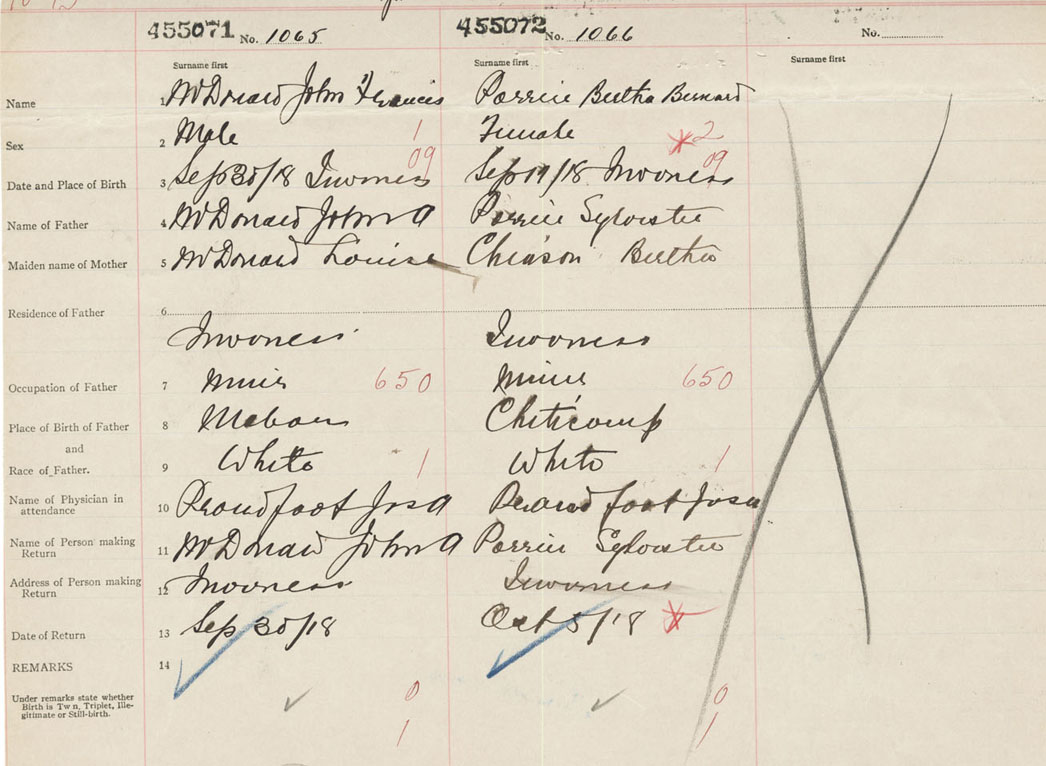 455071 No. 1065 455072 No. 1066 No.
Surname first Surname first Surname first
Name 1 McDonald John Francis Perrier Bertha Bernard
Sex 2 Male 1 Female 2
09 09
Date and Place of Birth 3 Sep 30/18 Inverness Sep /18 Inverness
Name of Father 4 McDonald John A Perrier Sylvester
Maiden name of Mother 5 McDonald Louise Chiason Bertha
Residence of Father 6
Inverness Inverness
Occupation of Father 7 Miner 650 Miner 650
Place of Birth of Father 8 Mabou Cheticamp
and
Race of Father. 9 White 1 White 1
Name of Physician in
attendance 10 Proudfoot Jos A Proudfoot Jos A
Name of Person making
Return 11 McDonald John A Perrier Sylvester
Address of Person making
Return 12 Inverness Inverness
Date of Return 13 Sep 30/18 Oct 5/18
REMARKS 14
Under remarks state whether
Birth is Twin, Triplet, Ille-
gitimate or Still-birth.
0 0
1 1